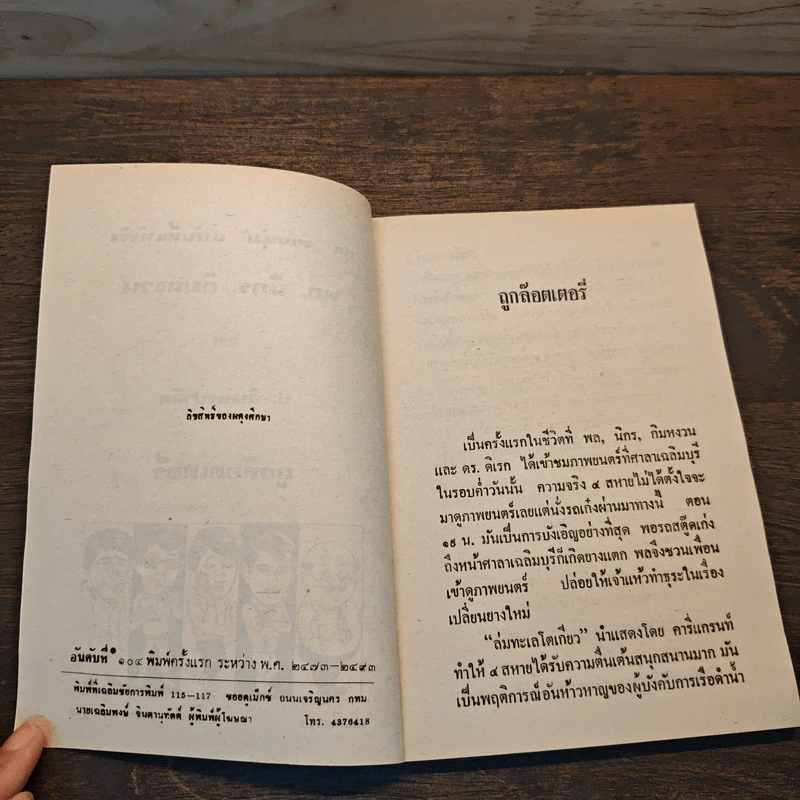 ลิขสิทธิ์ของผดุงศึกษา
อันดับที่ ๑๐๔ พิมพ์ครั้งแรก ระหว่าง พ.ศ. ๒๔๗๓-๒๔๙๓
พิมพ์ที่เฉลิมชัยการพิมพ์ 115-117 ซอยคูเม็กซ์ ถนนเจริญนคร กทม
นายเฉลิมพงษ์ จินดานุทัตต์ ผู้พิมพ์ผู้โฆษณา โทร. 4376418
ถูกล๊อตเตอรี่
เป็นครั้งแรกในชีวิตที่ พล, นิกร, กิมหงวน
และ ดร. ดิเรก ได้เข้าชมภาพยนตร์ที่ศาลาเฉลิมบุรี
ในรอบค่ำวันนั้น ความจริง ๔ สหายไม่ได้ตั้งใจจะ
มาดูภาพยนตร์เลยแต่นั่งรถเก๋งผ่านมาทางนี้ ตอน
๑๙ น. มันเป็นการบังเอิญอย่างที่สุด พอรถสตู๊ดเก่ง
ถึงหน้าศาลาเฉลิมบุรีก็เกิดยางแตก พลจึงชวนเพื่อน
เข้าดูภาพยนตร์ ปล่อยให้เจ้าแห้วทำธุระในเรื่อง
เปลี่ยนยางใหม่
“ล่มทะเลโตเกียว” นำแสดงโดย คารี่แกรนท์
ทำให้ ๔ สหายได้รับความตื่นเต้นสนุกสนานมาก มัน
เป็นพฤติการณ์อันห้าวหาญของผู้บังคับการเรือดำน้ำ